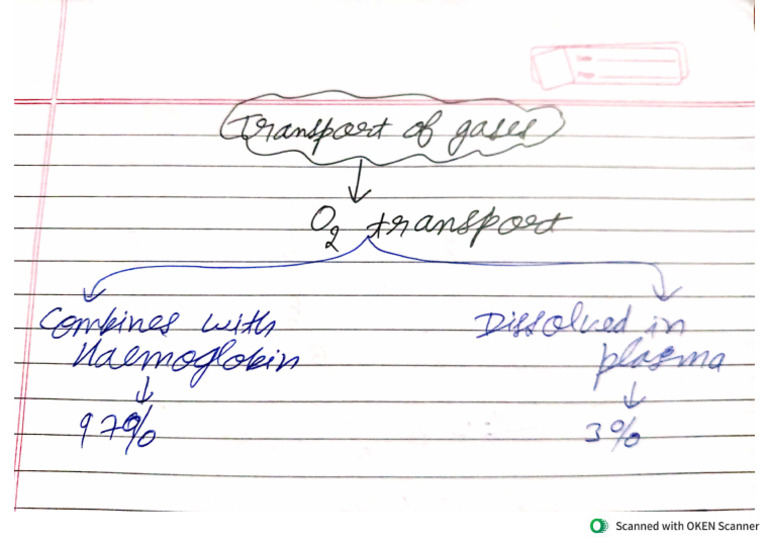 Transport of gases
O2 transport
Combines with
Haemoglobin
97%
Dissolved in
plasma
3%
Scanned with OKEN Scanner